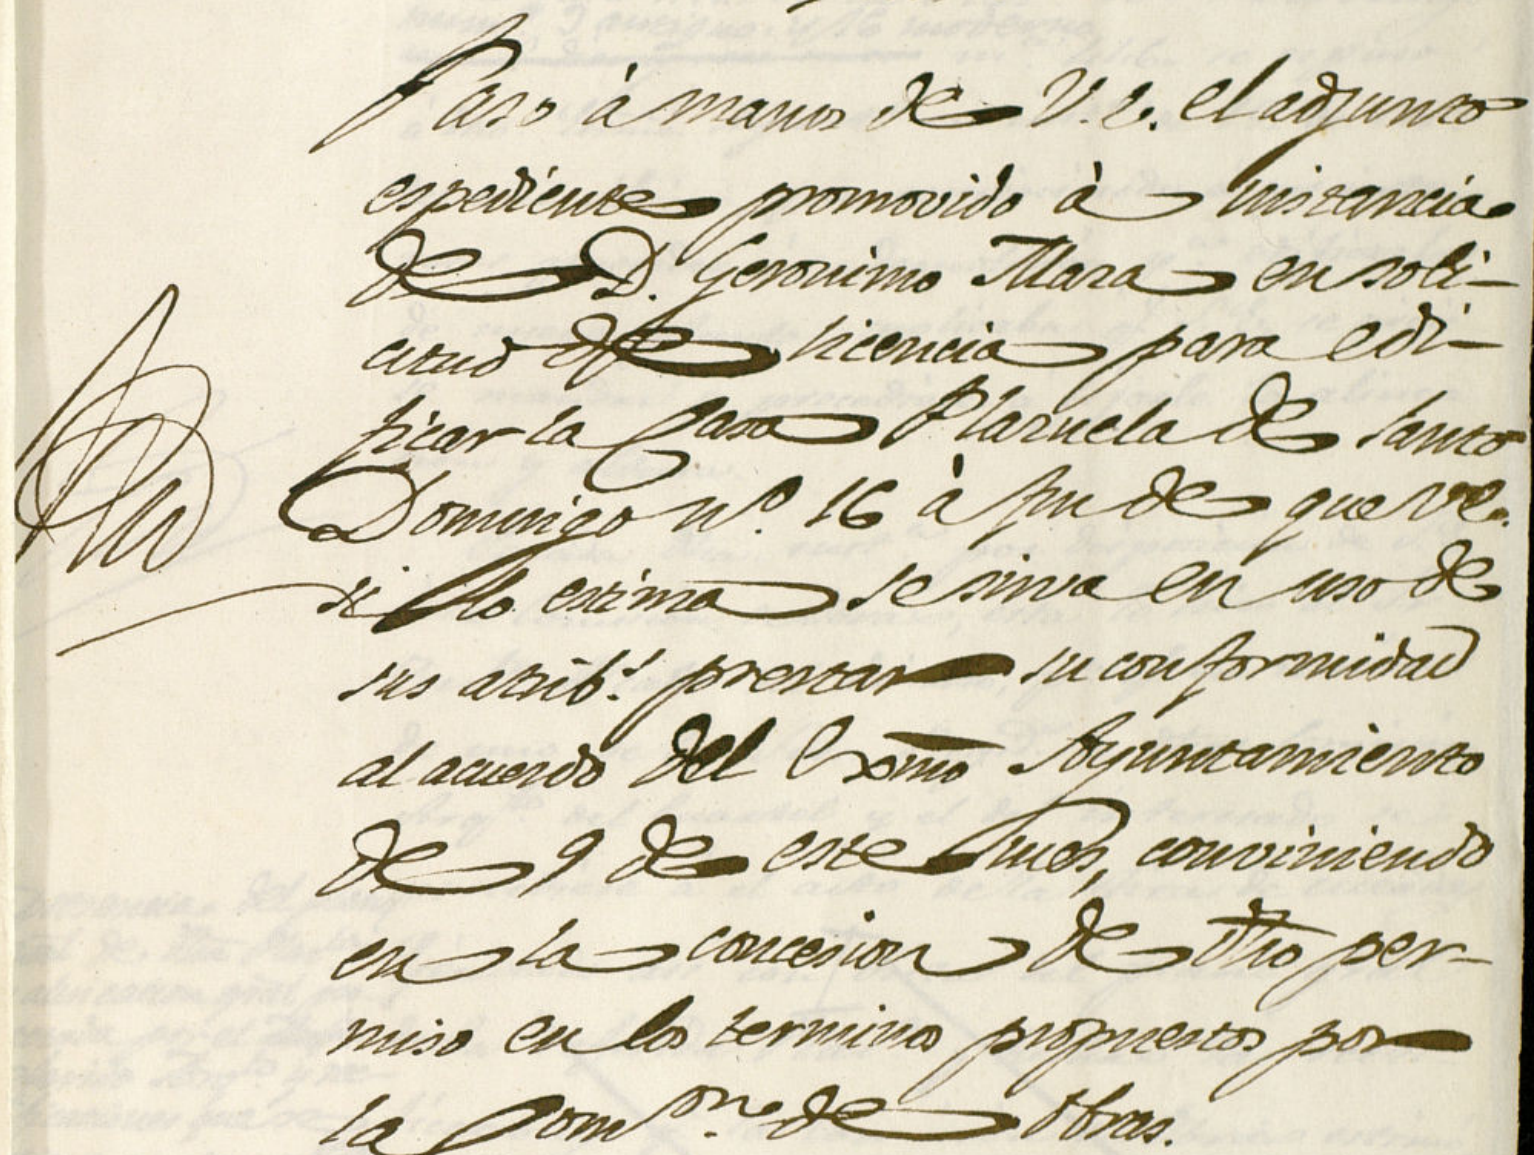 Paso à manos de V. E. el adjunto
espediente promovido à instancia
de D. Geronimo Mara en soli-
citud de licencia para edi-
ficar la Casa Plazuela de Santo
Domingo nº. 16 à fin de que V.E.
si lo estima se sirva en uso de
sus atrib.s prestar su conformidad
al acuerdo del Exmo Ayuntamiento
de 9 de este mes, conviniendo
en la concesion de dho per-
miso en los terminos propuestos por
la Com.on de Obras.